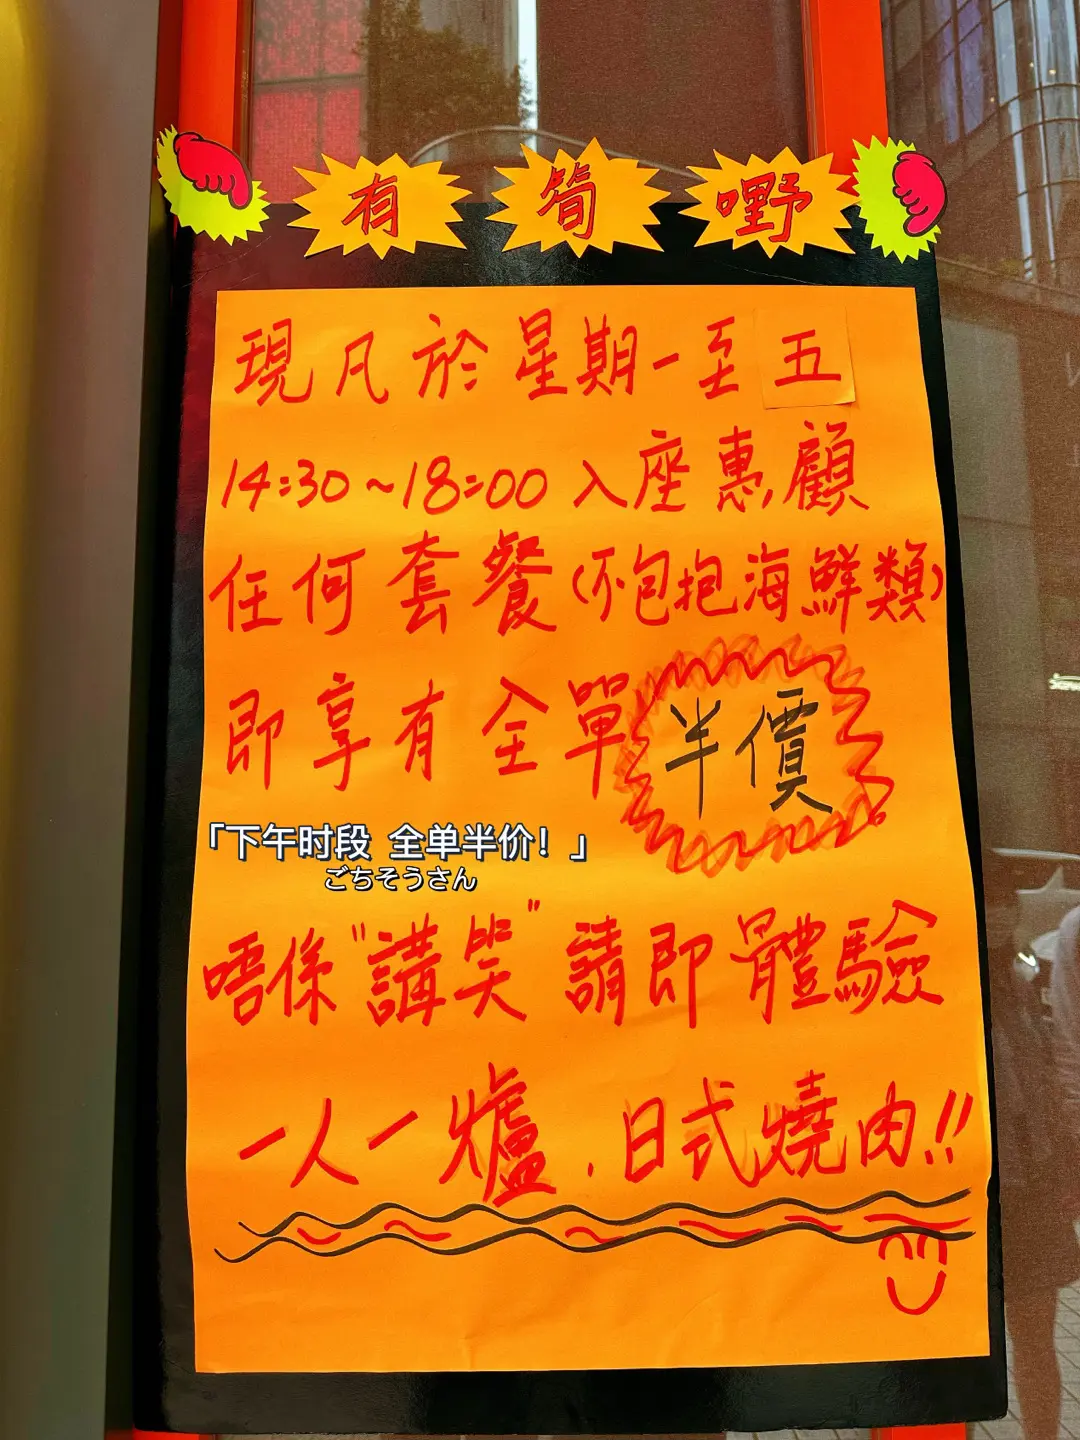 有筍嘢
現凡於星期一至五
14:30~18:00入座惠顧
任何套餐(不包抱海鮮類)
即享有全單半價
「下午时段 全单半价！」
ごちそうさん
唔係"講笑"請即體驗
一人一爐.日式燒肉!!